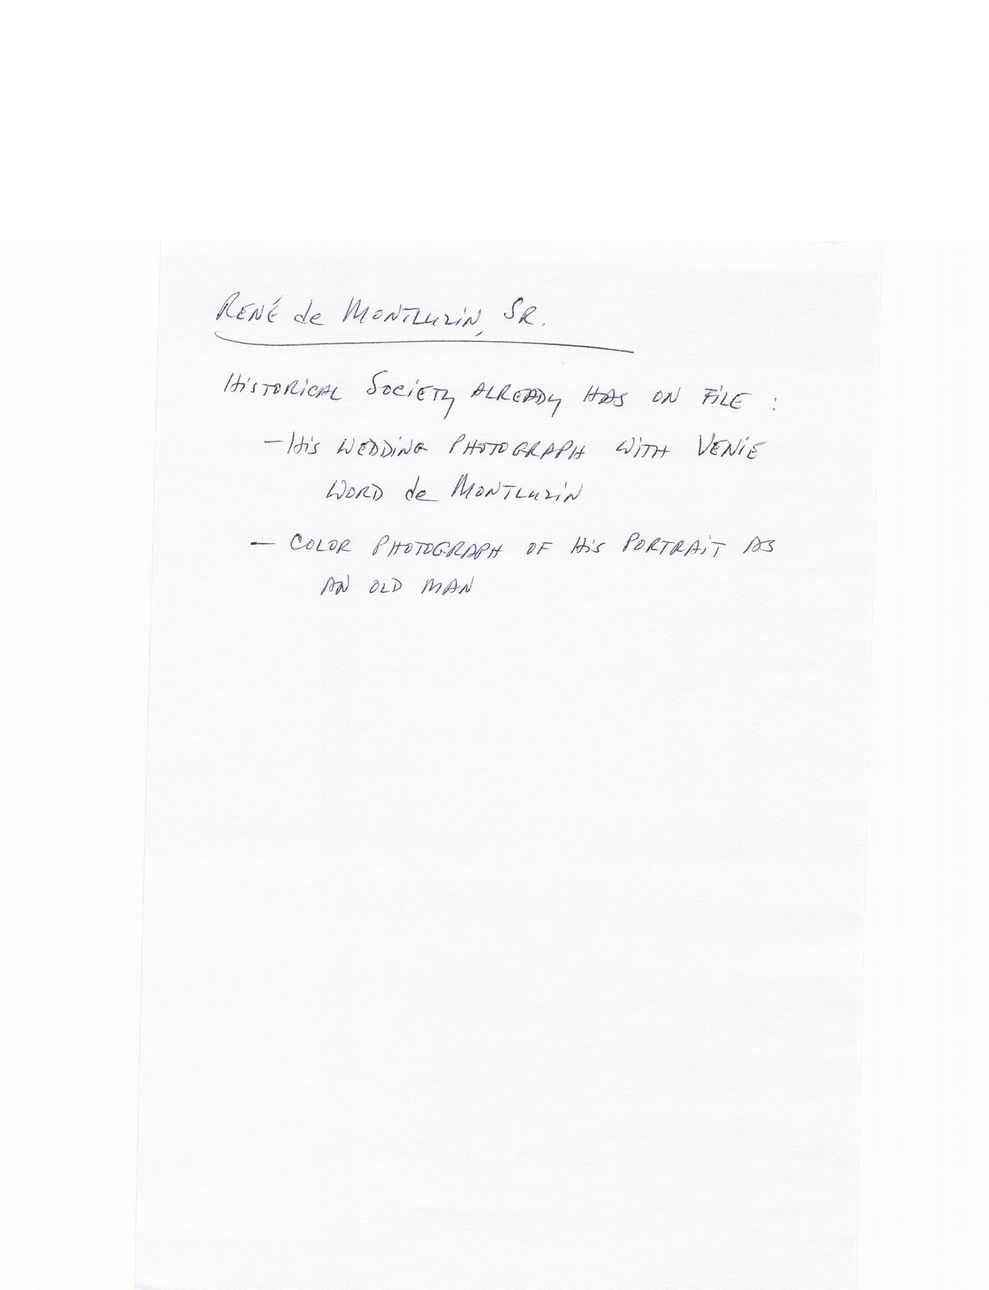 René de Montluzin, Sr.
Historical Society already has on file :
— His wedding photograph with Venie
Word de Montluzin
— Color photograph of his portrait as
an old man